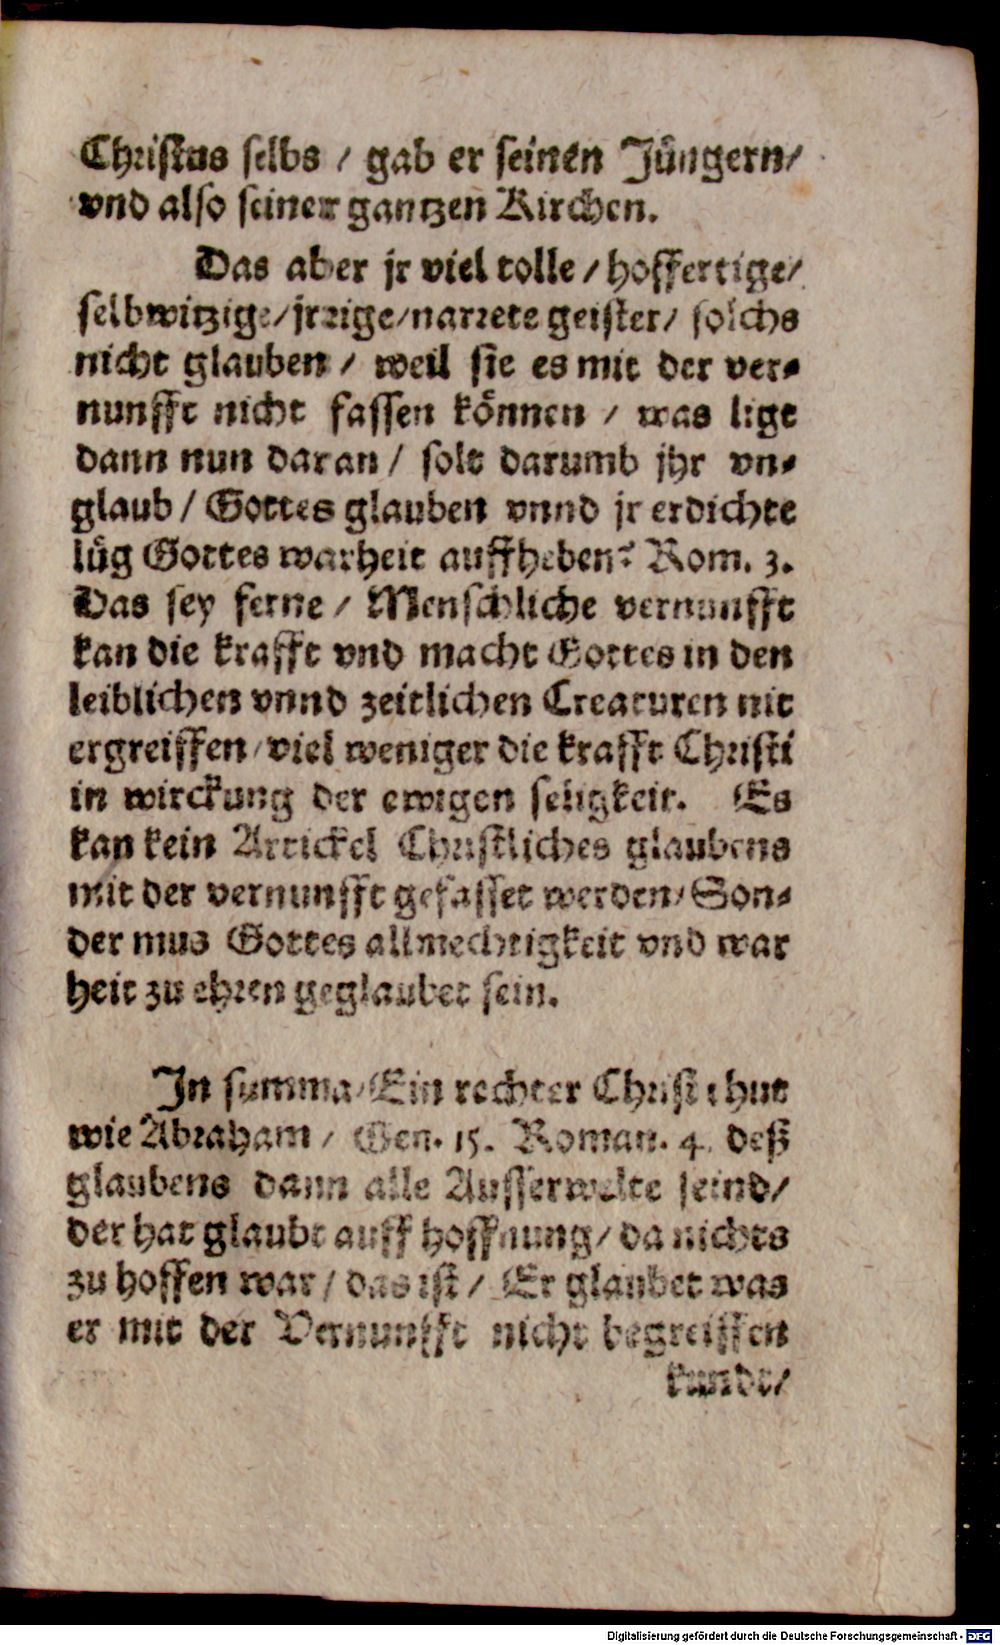 Christus selbs / gab er seinen Jüngern/
vnd also seiner gantzen Kirchen.
Das aber jr viel tolle / hoffertige/
selbwitzige/jrrige/narrete geister/ solchs
nicht glauben / weil sie es mit der ver-
nunfft nicht fassen können / was ligt
dann nun daran / solt darumb jhr vn-
glaub / Gottes glauben vnnd jr erdichte
lüg Gottes warheit auffheben? Rom. 3.
Das sey ferne / Menschliche vernunfft
kan die krafft vnd macht Gottes in den
leiblichen vnnd zeitlichen Creaturen nit
ergreiffen/viel weniger die krafft Christi
in wirckung der ewigen seligkeit. Es
kan kein Artickel Christliches glaubens
mit der vernunfft gefasset werden/Son-
der mus Gottes allmechtigkeit vnd war
heit zu ehren geglaubet sein.
In summa/Ein rechter Christ thut
wie Abraham / Gen. 15. Roman. 4. deß
glaubens dann alle Ausserwelte seind/
der hat glaubt auff hoffnung/da nichts
zu hoffen war / das ist / Er glaubet was
er mit der Vernunfft nicht begreiffen
kunde/
Digitalisierung gefördert durch die Deutsche Forschungsgemeinschaft - DFG